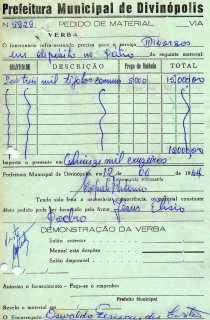 Prefeitura Municipal de Divinópolis
N. 9929 PEDIDO DE MATERIAL VIA
VERBA
O funcionário infra-assinado precisa para o serviço Diversos
em depósito no Patio do seguinte material:
QUANTIDADE DESCRIÇÃO Preço da Unidade TOTAL
tres mil tijolos comuns 5000 15.000,00
15.000,00
Importa o presente em quinze mil cruzeiros
Prefeitura Municipal de Divinópolis, em 12 de 06 de 1964
Encarregado Almoxarife.
Tendo sido feita a necessária concorrência, o material constante
dêste pedido pode ser fornecido pela firma Jesus Elisio
DEMONSTRAÇÃO DA VERBA
Saldo anterior
Menos: esta despêsa
Saldo disponível
Autorizo o fornecimento - Faça-se o empenho:
Prefeito Municipal
Recebi o material em
O Encarregado Oswaldo